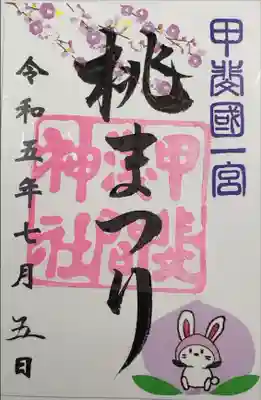 甲斐國一宮
桃まつり
甲斐
淺間
神社
令和五年七月五日